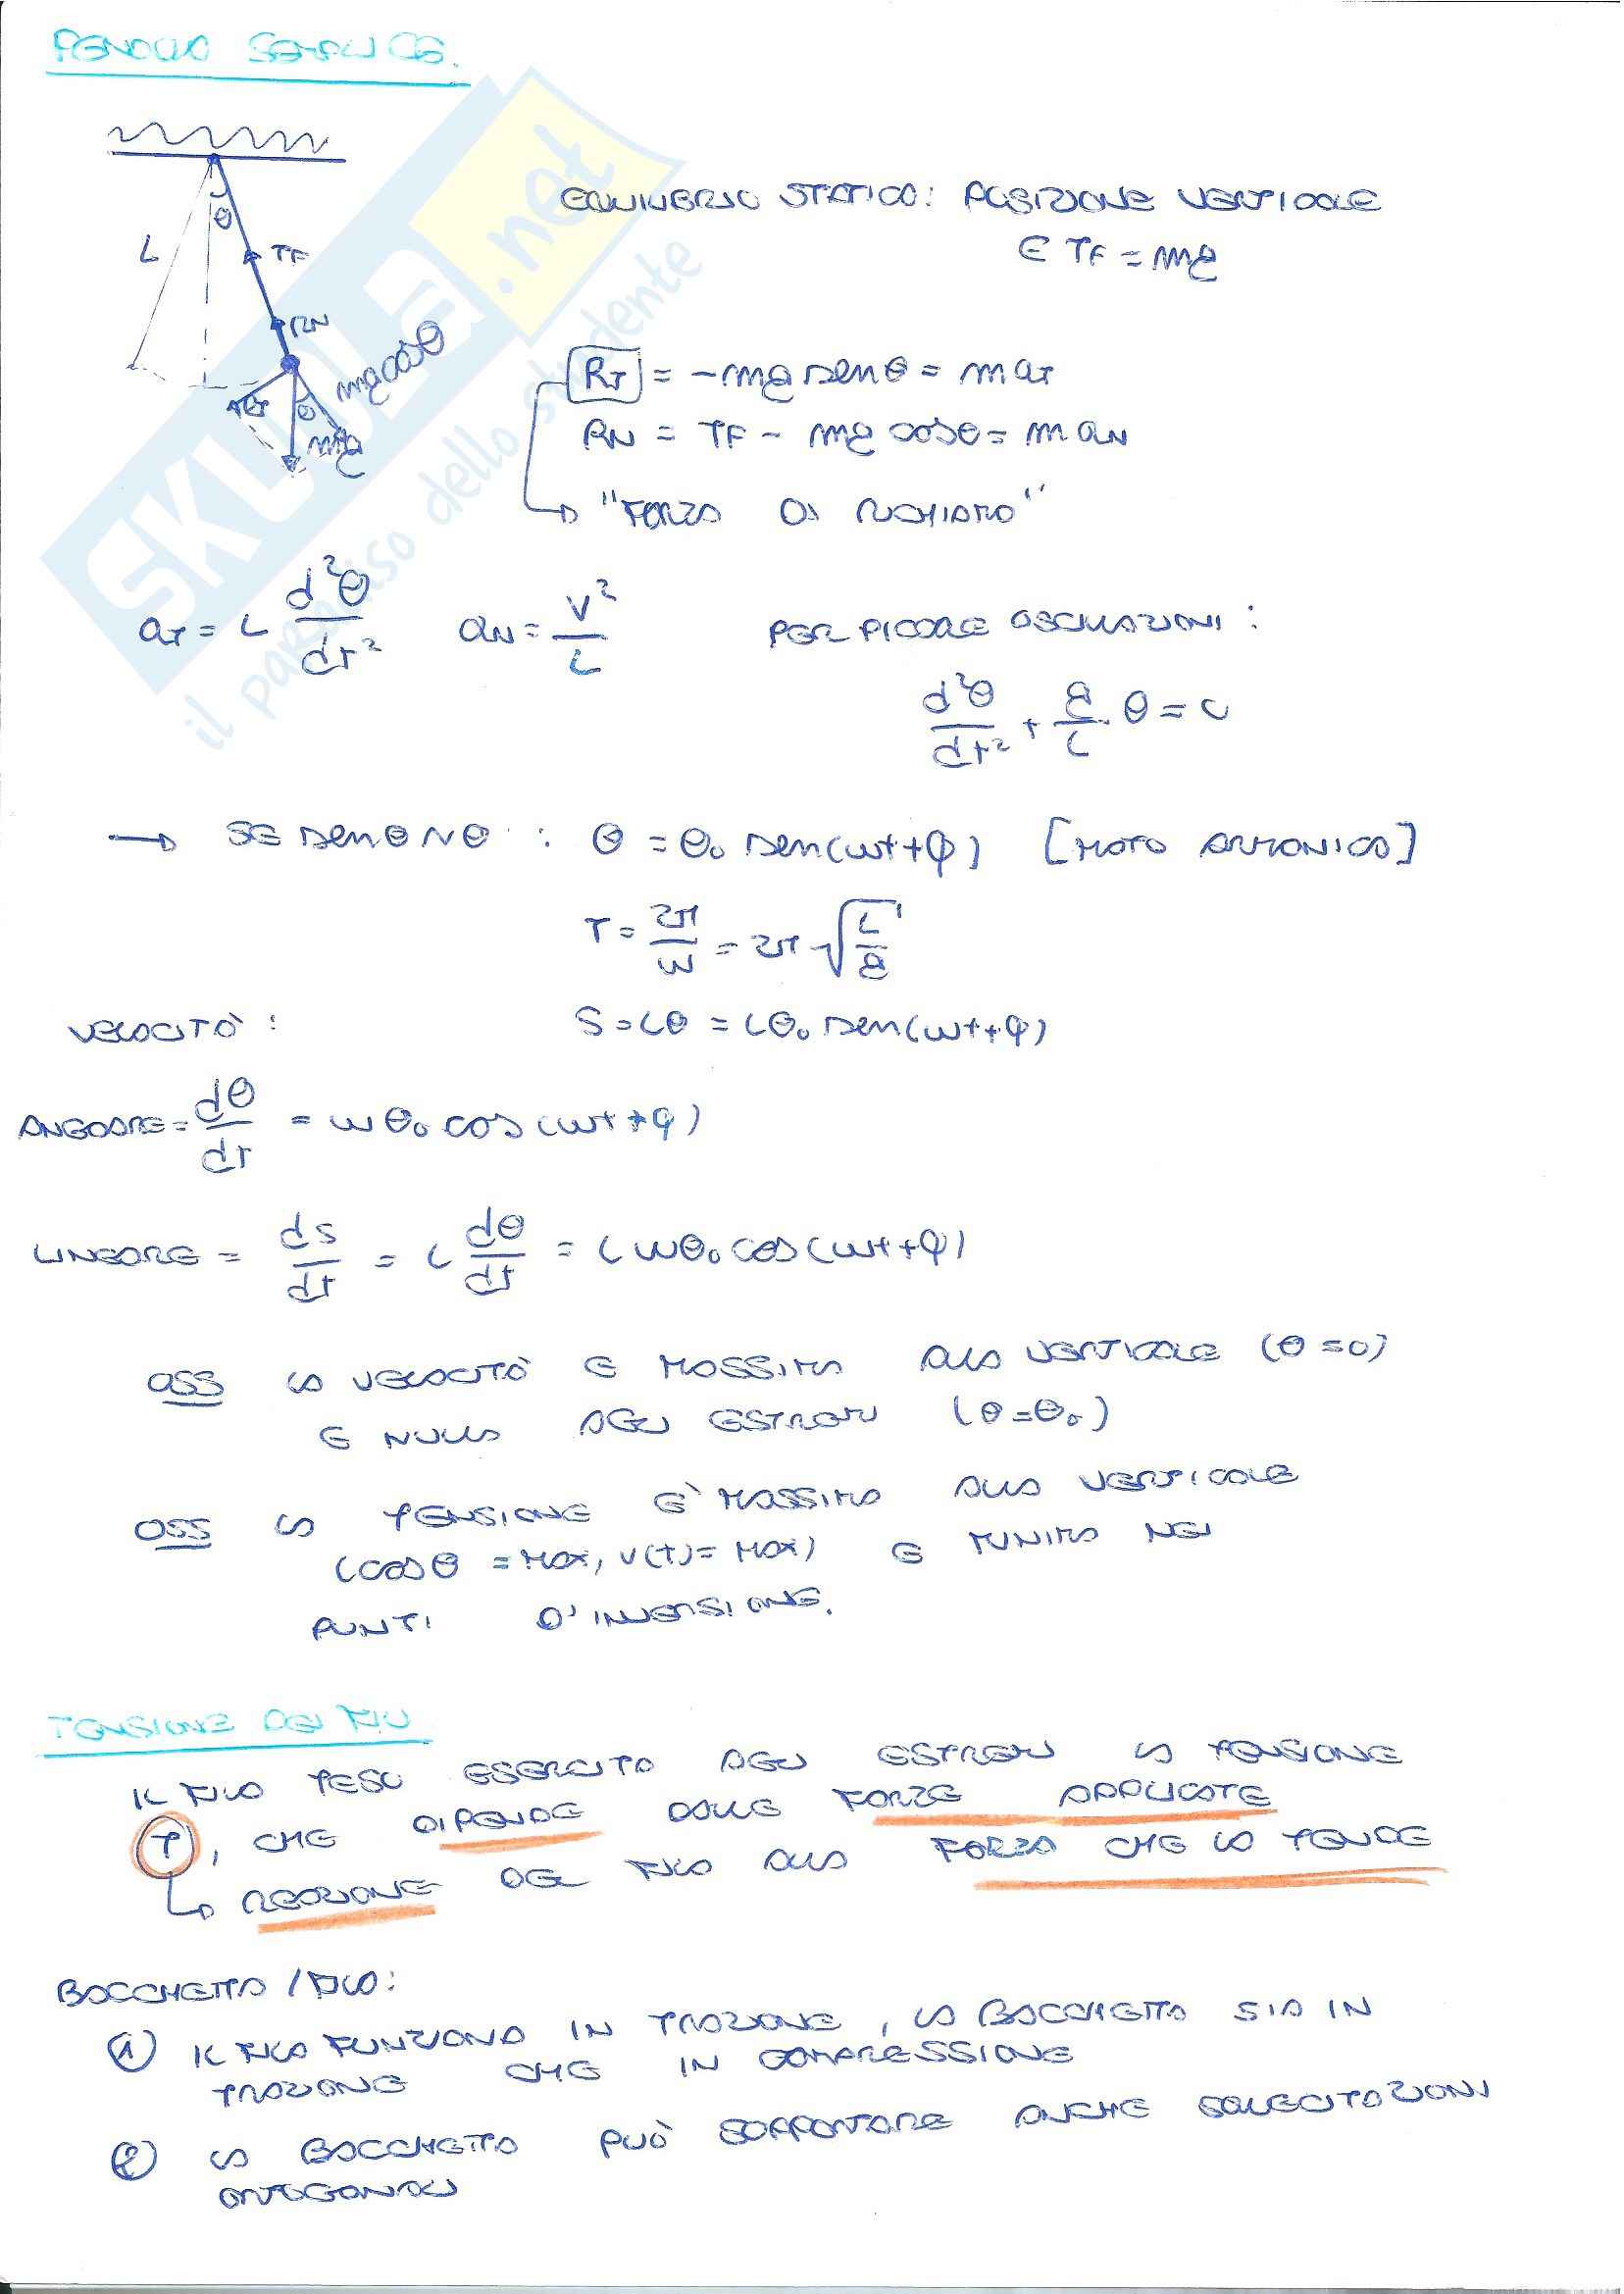 PENDOLO SEMPLICE.
θ
L
TF
RN
mg cosθ
RT
θ
mg
EQUILIBRIO STATICO: POSIZIONE VERTICALE
E TF = mg
RT = -mg senθ = m aT
RN = TF - mg cosθ = m aN
"FORZA DI RICHIAMO"
aT = L d²θ/dt² aN = v²/L PER PICCOLE OSCILLAZIONI:
d²θ/dt² + g/L · θ = 0
→ SE senθ ~ θ : θ = θ₀ sen(ωt+φ) [MOTO ARMONICO]
T = 2π/ω = 2π √(L/g)
VELOCITÀ : S = Lθ = Lθ₀ sen(ωt+φ)
ANGOLARE = dθ/dt = ωθ₀ cos(ωt+φ)
LINEARE = ds/dt = L dθ/dt = Lωθ₀ cos(ωt+φ)
OSS LA VELOCITÀ E MASSIMA ALLA VERTICALE (θ=0)
E NULLA AGLI ESTREMI (θ=θ₀)
OSS LA TENSIONE E' MASSIMA ALLA VERTICALE
(cosθ = MAX, v(t) = MAX) E MINIMA NEI
PUNTI D'INVERSIONE.
TENSIONE DEI FILI
IL FILO TESO ESERCITA AGLI ESTREMI LA TENSIONE
T, CHE DIPENDE DALLE FORZE APPLICATE
↳ REAZIONE DEL FILO ALLA FORZA CHE LO TENDE
BACCHETTA / FILO:
① IL FILO FUNZIONA IN TRAZIONE, LA BACCHETTA SIA IN
TRAZIONE CHE IN COMPRESSIONE
② LA BACCHETTA PUÒ SOPPORTARE ANCHE SOLLECITAZIONI
ORTOGONALI
SKUOLA.net
il paradiso dello studente